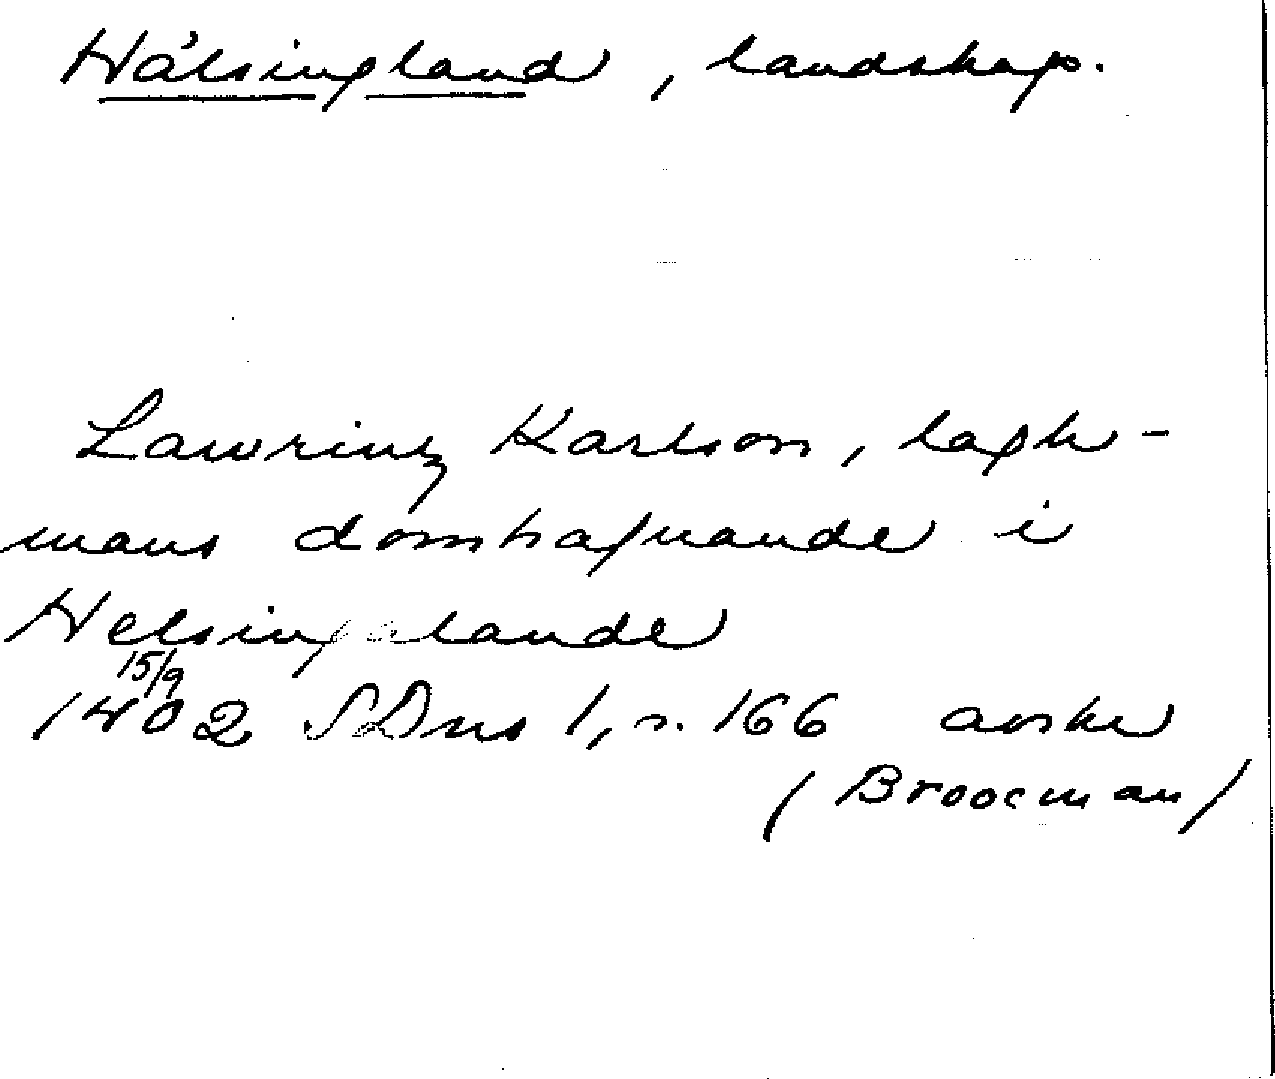 Hälsingland, landskap.
Lawrinz Karlson, lagh-
mans domhafuande i
Helsingalande
15/9
1402 SDns 1, s. 166 avskr
(Broocman)